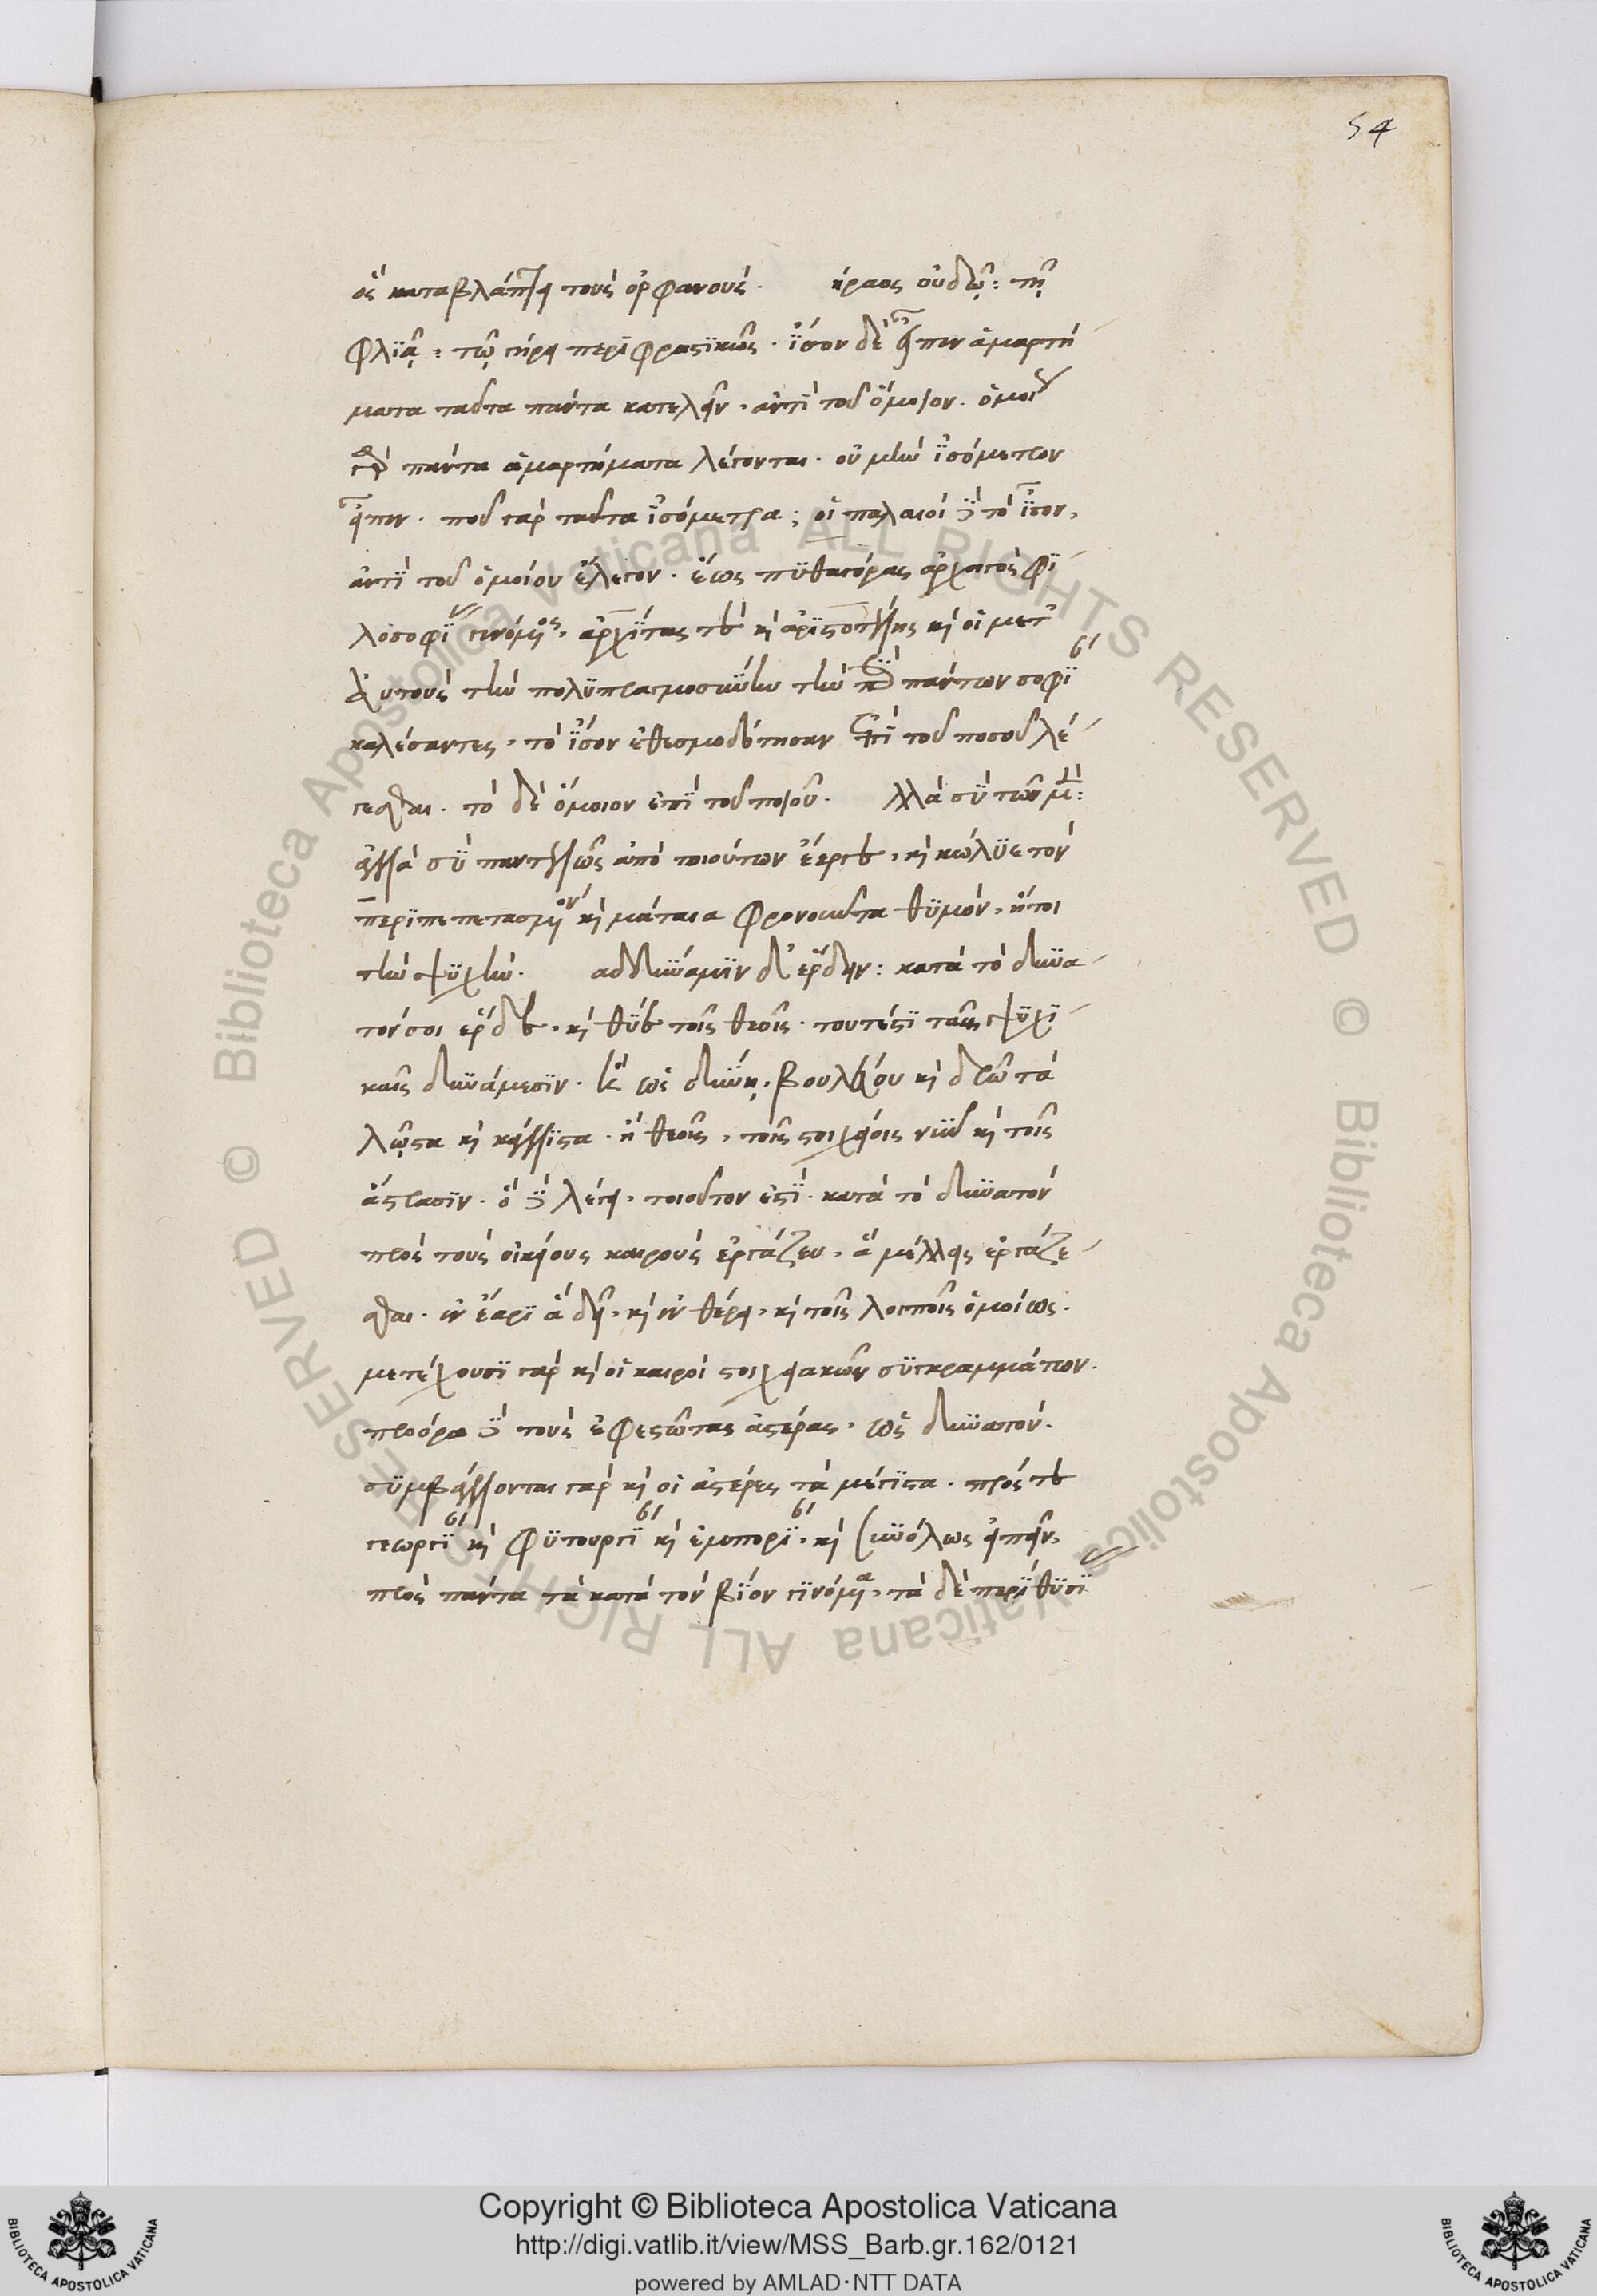 54
ὃς καταβλάπτει τοὺς ὀρφανούς. ήραος οὐδῷ: τῇ
φλϊᾷ: τῷ γήρᾳ περϊφραστϊκῶς. ἴσον δὲ εἶπεν ἁμαρτή
ματα ταῦτα πάντα κατελθεῖν, ἀντὶ τοῦ ὅμοιον. ὁμοί
γὰρ πάντα ἁμαρτήματα λέγονται. οὐ μὴν ἰσόμετρον
εἶπεν. ποῦ γὰρ ταῦτα ἰσόμετρα; οἱ παλαιοὶ δὲ τὸ ἴσον,
ἀντὶ τοῦ ὁμοίου ἔλεγον. ἕως πϋθαγόρας ἀρχηγὸς φϊ
λοσοφϊ γενόμος, ἀρχΐτας τὲ κὶ ἀρϊστοτέλης κὶ οἱ μετ
αὐτοὺς τὴν πολϋπραγμοσύνην τὴν πϋ πάντων σοφΐ
καλέσαντες, τὸ ἴσον ἐθεσμοθέτησαν ἐπὶ τοῦ ποσοῦ λέ
γεσθαι. τὸ δὲ ὅμοιον ἐπὶ τοῦ ποιοῦ. λλὰ σϋ τῶν μ:
ἀλλὰ σϋ παντελῶς ἀπὸ τοιούτων ἔεργε, κὶ κώλϋε τὸν
περϊπεπετασμον κὶ μάταια φρονοῦντα θϋμὸν, ἤτοι
τὴν ψϋχήν. αδδϋναμϊν δ' ἔρδειν: κατὰ τὸ δϋνα
τόν σοι ἔρδε, κὶ θϋε τοῖς θεοῖς. τουτέστϊ ταῖς ψϋχϊ
καῖς δϋνάμεσϊν. κ ὡς δϋνῃ, βουλεύου κὶ δρῶ τὰ
λῷστα κὶ κάλλϊστα. ἢ θεοῖς, τοῖς στοιχείοις νῦν κὶ τοῖς
ἄστρασϊν. ὃ δὲ λέγει, τοιοῦτον ἐστΐ. κατὰ τὸ δϋνατὸν
πρὸς τοὺς οἰκείους καιροὺς ἐργάζευ, ἃ μέλλεις ἐργάζε
σθαι. ἐν ἔαρϊ ἃ δεῖ, κὶ ἐν θέρει, κὶ τοῖς λοιποῖς ὁμοίως.
μετέχουσϊ γὰρ κὶ οἱ καιροὶ στοιχειακῶν σϋγκραμμάτων.
προόρα δὲ τοὺς ἐφεστῶτας ἀστέρας, ὡς δϋνατόν.
σϋμβάλλονται γὰρ κὶ οἱ ἀστέρες τὰ μέγϊστα. πρός τε
γεωργΐ κὶ φϋτουργΐ κὶ ἐμπορΐ, κὶ σϋνόλως εἰπεῖν,
πρὸς πάντα τὰ κατὰ τὸν βΐον γϊνόμα, τὰ δὲ περϊ θϋσϊ
Copyright © Biblioteca Apostolica Vaticana
http://digi.vatlib.it/view/MSS_Barb.gr.162/0121
powered by AMLAD·NTT DATA